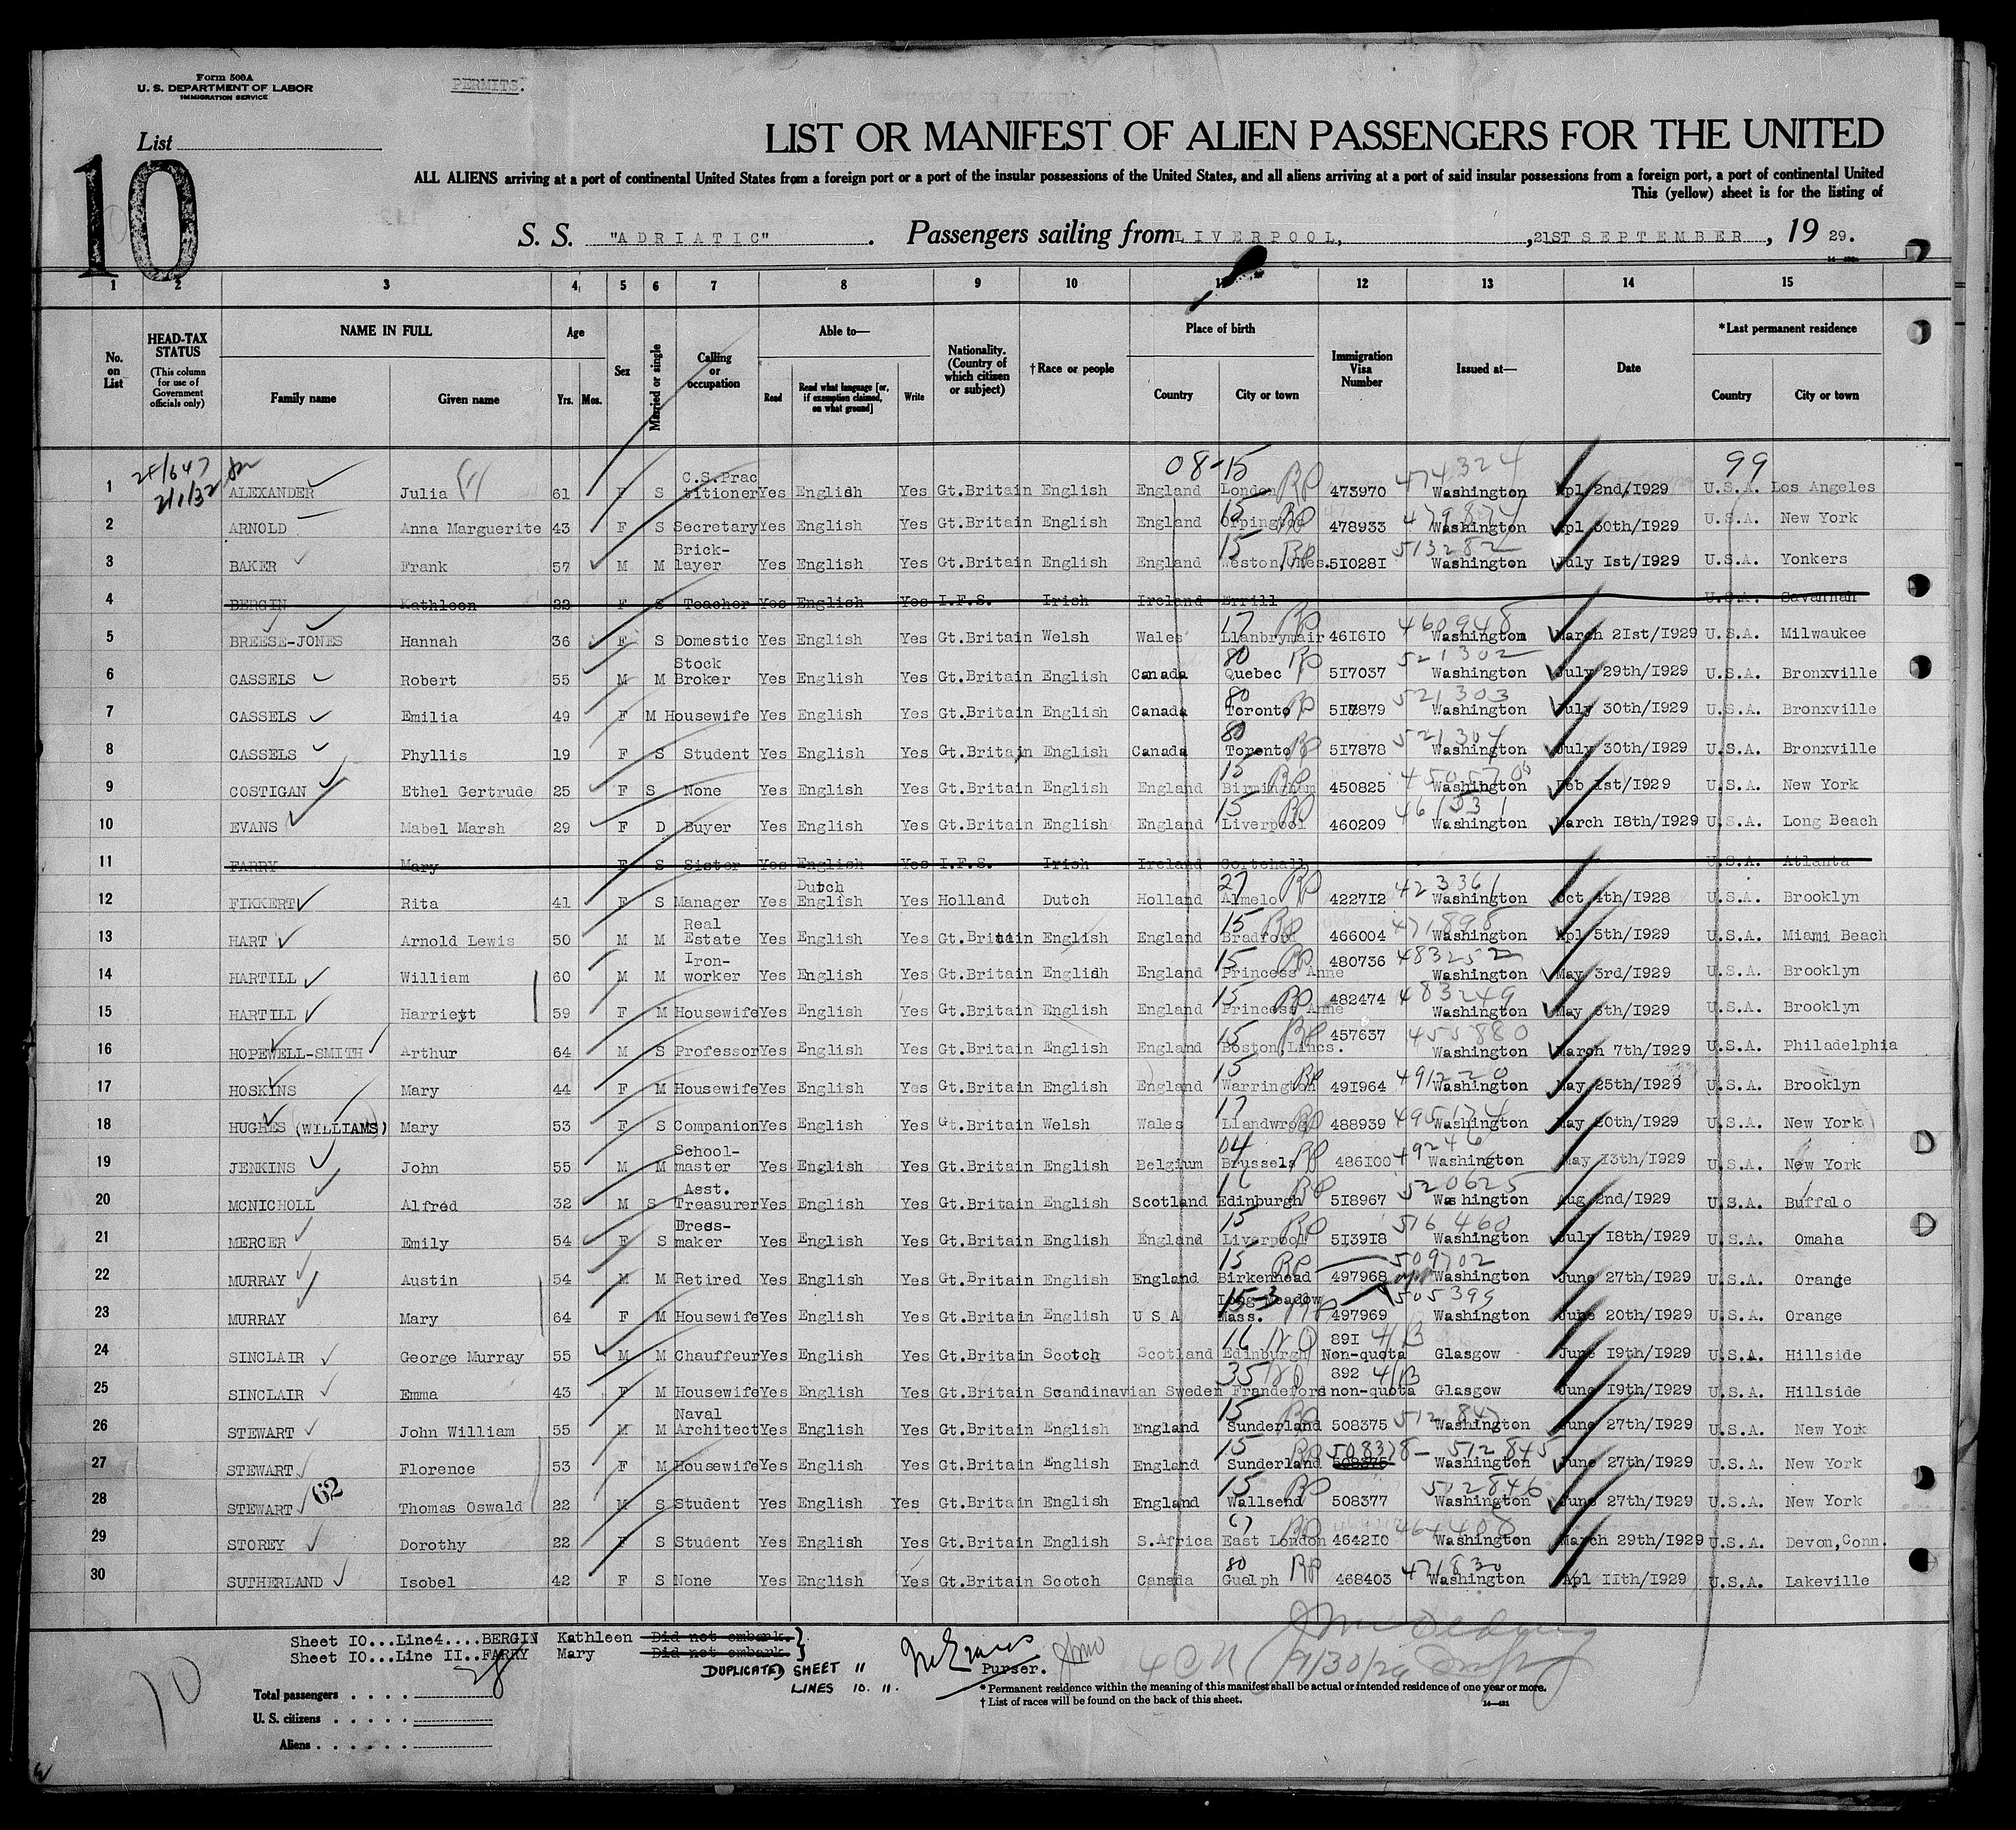 Form 500A
U. S. DEPARTMENT OF LABOR
IMMIGRATION SERVICE
PERMITS.
List
10
LIST OR MANIFEST OF ALIEN PASSENGERS FOR THE UNITED
ALL ALIENS arriving at a port of continental United States from a foreign port or a port of the insular possessions of the United States, and all aliens arriving at a port of said insular possessions from a foreign port, a port of continental United
This (yellow) sheet is for the listing of
S. S. "ADRIATIC". Passengers sailing from LIVERPOOL, ,21ST SEPTEMBER, 19 29.
1 2 3 4 5 6 7 8 9 10 11 12 13 14 15
No. on List
HEAD-TAX STATUS (This column for use of Government officials only)
NAME IN FULL
Family name
Given name
Age
Yrs. Mos.
Sex
Married or single
Calling or occupation
Able to—
Read
Read what language [or, if exemption claimed, on what ground]
Write
Nationality. (Country of which citizen or subject)
†Race or people
Place of birth
Country
City or town
Immigration Visa Number
Issued at—
Date
*Last permanent residence
Country
City or town
08-15 99
2/1/32
1 ALEXANDER Julia 61 F S C.S.Practitioner Yes English Yes Gt.Britain English England London RP 473970 474324 Washington Apl 2nd/1929 U.S.A. Los Angeles
2 ARNOLD Anna Marguerite 43 F S Secretary Yes English Yes Gt.Britain English England 15 Orpington RP 478933 Washington Apl 30th/1929 U.S.A. New York
3 BAKER Frank 57 M M Brick-layer Yes English Yes Gt.Britain English England 15 RP 510281 513282 Washington July 1st/1929 U.S.A. Yonkers
4 BERGIN Kathleen 22 F S Teacher Yes English Yes I.F.S. Irish Ireland Errill U.S.A. Savannah
5 BREESE-JONES Hannah 36 F S Domestic Yes English Yes Gt.Britain Welsh Wales 17 Llanbrymair RP 461610 460948 Washington March 21st/1929 U.S.A. Milwaukee
6 CASSELS Robert 55 M M Stock Broker Yes English Yes Gt.Britain English Canada 80 Quebec RP 517037 521302 Washington July 29th/1929 U.S.A. Bronxville
7 CASSELS Emilia 49 F M Housewife Yes English Yes Gt.Britain English Canada 80 Toronto RP 517879 521303 Washington July 30th/1929 U.S.A. Bronxville
8 CASSELS Phyllis 19 F S Student Yes English Yes Gt.Britain English Canada 80 Toronto RP 517878 521304 Washington July 30th/1929 U.S.A. Bronxville
9 COSTIGAN Ethel Gertrude 25 F S None Yes English Yes Gt.Britain English England 15 Birmingham RP 450825 Washington Feb 1st/1929 U.S.A. New York
10 EVANS Mabel Marsh 29 F D Buyer Yes English Yes Gt.Britain English England 15 Liverpool RP 460209 461531 Washington March 18th/1929 U.S.A. Long Beach
11 FARRY Mary F S Sister Yes English Yes I.F.S. Irish Ireland U.S.A. Atlanta
12 FIKKERT Rita 41 F S Manager Yes Dutch English Yes Holland Dutch Holland 27 Almelo RP 422712 423361 Washington Oct 4th/1928 U.S.A. Brooklyn
13 HART Arnold Lewis 50 M M Real Estate Yes English Yes Gt.Britain English England 15 Bradford RP 466004 471898 Washington Apl 5th/1929 U.S.A. Miami Beach
14 HARTILL William 60 M M Iron-worker Yes English Yes Gt.Britain English England 15 Princess Anne RP 480736 483252 Washington May 3rd/1929 U.S.A. Brooklyn
15 HARTILL Harriett 59 F M Housewife Yes English Yes Gt.Britain English England 15 Princess Anne RP 482474 483249 Washington May 8th/1929 U.S.A. Brooklyn
16 HOPEWELL-SMITH Arthur 64 M S Professor Yes English Yes Gt.Britain English England 15 Boston, Lincs. RP 457637 455880 Washington March 7th/1929 U.S.A. Philadelphia
17 HOSKINS Mary 44 F M Housewife Yes English Yes Gt.Britain English England 15 Warrington RP 491964 491220 Washington May 25th/1929 U.S.A. Brooklyn
18 HUGHES (WILLIAMS) Mary 53 F S Companion Yes English Yes Gt.Britain Welsh Wales 17 Llandwrog RP 488939 495174 Washington May 20th/1929 U.S.A. New York
19 JENKINS John 55 M M School-master Yes English Yes Gt.Britain English Belgium 04 Brussels RP 486100 49246 Washington May 13th/1929 U.S.A. New York
20 MCNICHOLL Alfred 32 M S Asst. Treasurer Yes English Yes Gt.Britain English Scotland 16 Edinburgh RP 518967 520625 Washington Aug 2nd/1929 U.S.A. Buffalo
21 MERCER Emily 54 F S Dress-maker Yes English Yes Gt.Britain English England 15 Liverpool RP 513918 516460 Washington July 18th/1929 U.S.A. Omaha
22 MURRAY Austin 54 M M Retired Yes English Yes Gt.Britain English England 15 Birkenhead RP 497968 509702 Washington June 27th/1929 U.S.A. Orange
23 MURRAY Mary 64 F M Housewife Yes English Yes Gt.Britain English U S A 15-3 Long Meadow Mass. RP 497969 505399 Washington June 20th/1929 U.S.A. Orange
24 SINCLAIR George Murray 55 M M Chauffeur Yes English Yes Gt.Britain Scotch Scotland 16 Edinburgh 891 Non-quota 4/B Glasgow June 19th/1929 U.S.A. Hillside
25 SINCLAIR Emma 43 F M Housewife Yes English Yes Gt.Britain Scandinavian Sweden 35 Frandefors 892 non-quota 4/B Glasgow June 19th/1929 U.S.A. Hillside
26 STEWART John William 55 M M Naval Architect Yes English Yes Gt.Britain English England 15 Sunderland RP 508375 512847 Washington June 27th/1929 U.S.A. New York
27 STEWART Florence 53 F M Housewife Yes English Yes Gt.Britain English England 15 Sunderland RP 508378 – 512845 Washington June 27th/1929 U.S.A. New York
28 STEWART 62 Thomas Oswald 22 M S Student Yes English Yes Gt.Britain English England 15 Wallsend RP 508377 512846 Washington June 27th/1929 U.S.A. New York
29 STOREY Dorothy 22 F S Student Yes English Yes Gt.Britain English S.Africa 67 East London RP 464210 464408 Washington March 29th/1929 U.S.A. Devon, Conn.
30 SUTHERLAND Isobel 42 F S None Yes English Yes Gt.Britain Scotch Canada 80 Guelph RP 468403 471830 Washington Apl 11th/1929 U.S.A. Lakeville
Sheet 10...Line4....BERGIN Kathleen Did not embark.
Sheet 10...Line 11..FARRY Mary Did not embark.
DUPLICATED SHEET 11
LINES 10. 11.
Purser.
9/30/29
10
28
Total passengers
U. S. citizens
Aliens
* Permanent residence within the meaning of this manifest shall be actual or intended residence of one year or more.
† List of races will be found on the back of this sheet.
14—421